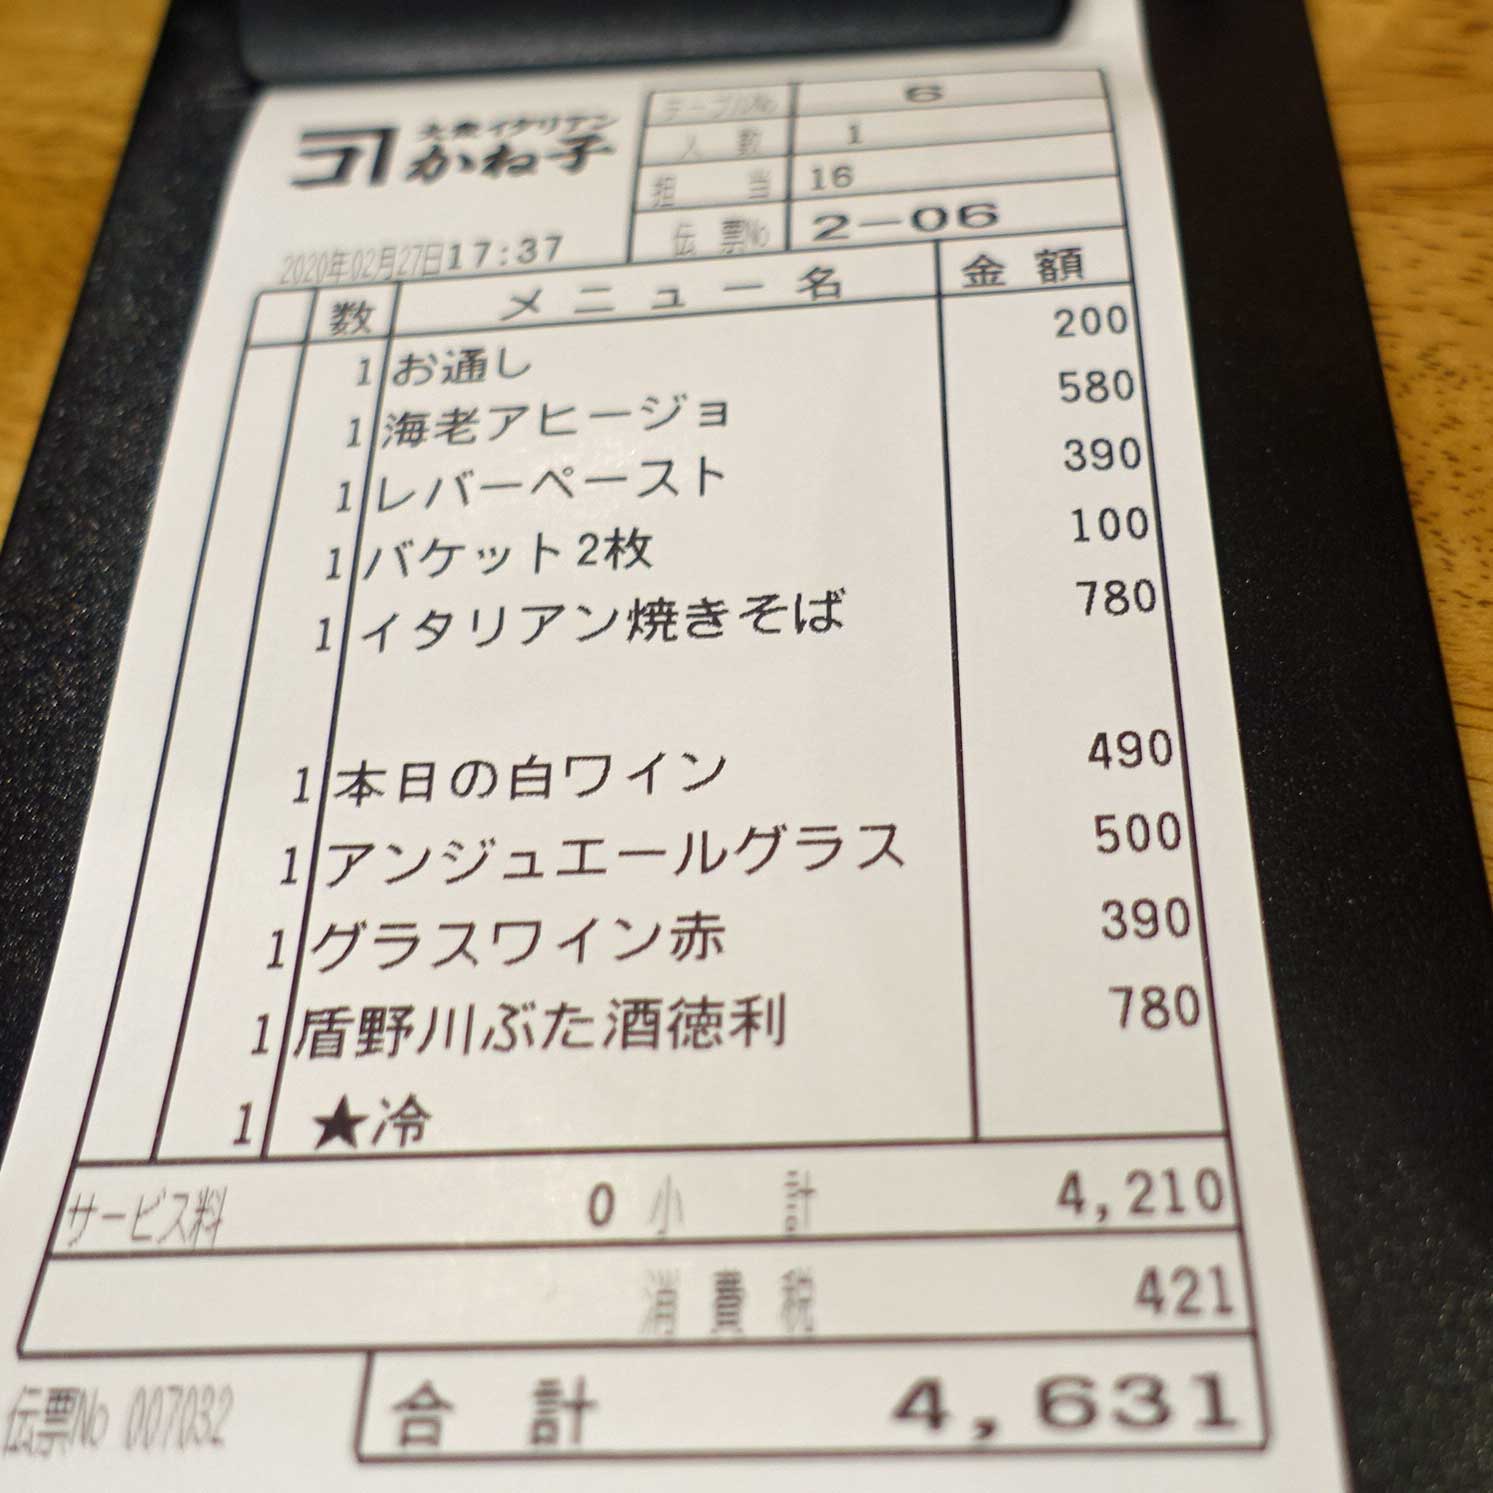 大衆イタリアン
かね子
テーブルNo 6
人数 1
担当 16
伝票No 2-06
2020年02月27日17:37
数 メニュー名 金額
1 お通し 200
1 海老アヒージョ 580
1 レバーペースト 390
1 バケット2枚 100
1 イタリアン焼きそば 780
1 本日の白ワイン 490
1 アンジュエールグラス 500
1 グラスワイン赤 390
1 盾野川ぶた酒徳利 780
1 ★冷
サービス料 0 小計 4,210
消費税 421
合計 4,631
伝票No 007032